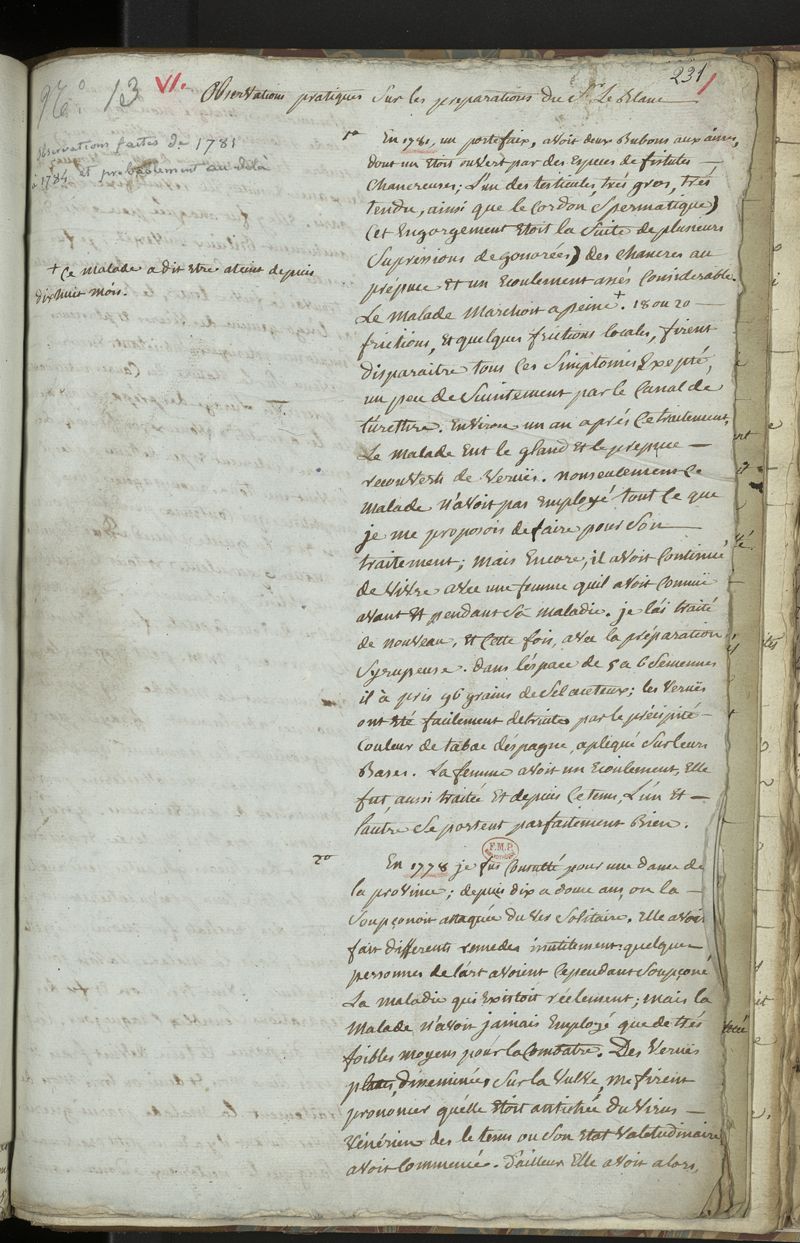 N.° 13 VI. 231
Observations pratiques Sur les preparations du Sr. Le Blanc
observations faites de 1781
à 1784 et probablement au delà
1° En 1781, un portefaix, avoit deux Bubons aux aines,
dont un Etoit ouvert par des Especes de fistules —
Chancreuses; L'un des testicules, trés gros, trés
tendu, ainsi que le Cordon Spermatique)
(cet Engorgement Etoit la Suite de plusieurs
Supressions de gonorées) des chancres au
prépuce Et un Ecoulement assés Considerable.
Le Malade Marchoit a peine +. 18 ou 20 —
+ Ce malade a dit Etre ateint depuis
dixhuit mois.
frictions, Et quelques frictions locales, firent
disparaitre tous Ces Simptomes Exepté,
un peu de Suintement par le Canal de
l'uretthre. Environ un an aprés Ce traitement,
Le Malade Eut le gland Et le prepuce —
recouverts de Verruës. nonseulement le
Malade n'avoit pas Employé tout Ce que
je me proposois de faire pour Son
traitement; Mais Encore, il avoit Continué
de Vivre avec une femme quil avoit Connuë
avant Et pendant Sa Maladie. je l'ai traité
de nouveau, Et Cette fois, avec la préparation
Syrupeuse. dans l'éspace de 5 a 6 Semennes
il à pris 96 grains de Sel aceteux; les Verruës
ont Eté facilement detruites par le précipité —
Couleur de tabac déspagne, apliqué Sur leurs
Bases. La femme avoit un Ecoulement, Elle
fut, aussi traitée Et depuis Ce tems, L'un Et —
l'autre Se portent parfaitement Bien.
F.M.P.
2° En 1778 je fus Consulté pour une dame de
la province; depuis dix a douze ans, on la —
Soupçonoit attaquée du Ver Solitaire. Elle avoit
fait differents remedes inutilement: quelques
personnes de l'art avoient Cependant Soupçoné
La Maladie qui Existoit réelement; mais la
Malade n'avoit jamais Employé que de trés
foibles moyens pour la Combatre. Des Verruës
plates, disseminées Sur la Vulve, me firent
prononcer qu'elle Etoit entichée du Virus —
Vénérien des le tems ou Son Etat Valetudinaire
avoit Commencé. D'ailleurs Elle avoit alors,